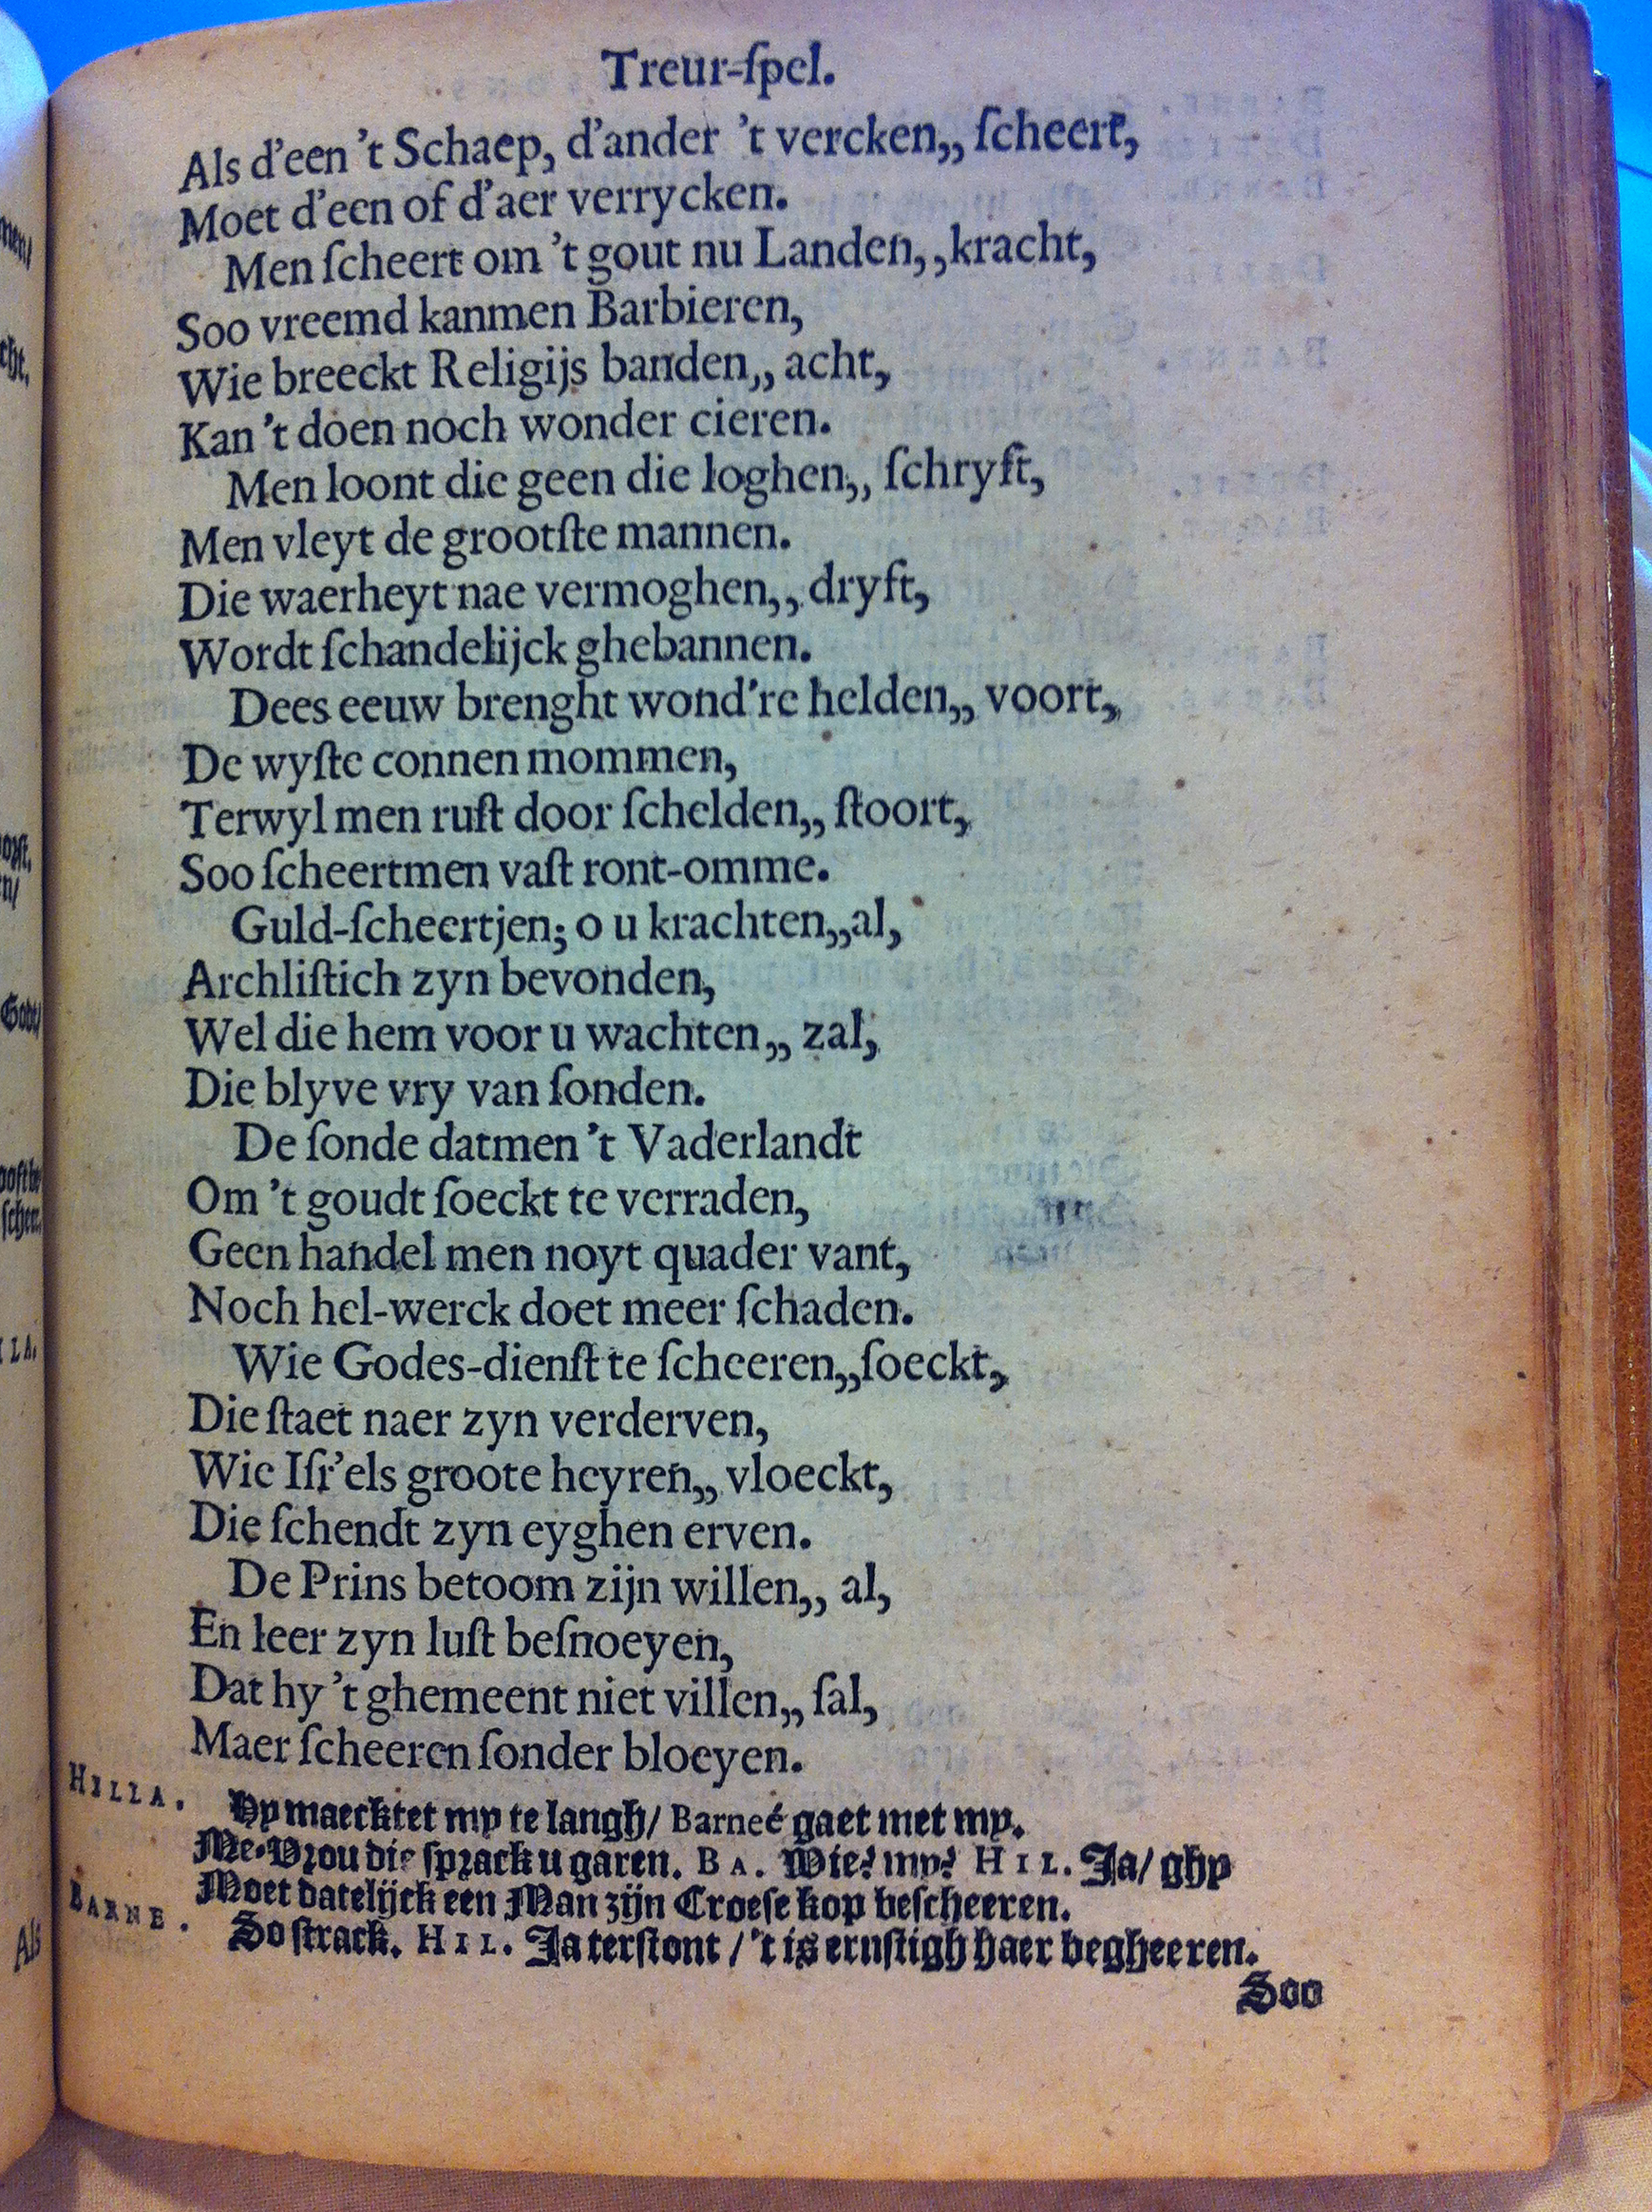 Treur-ſpel.
Als d'een 't Schaep, d'ander 't vercken,, ſcheert,
Moet d'een of d'aer verrycken.
Men ſcheert om 't gout nu Landen,,kracht,
Soo vreemd kanmen Barbieren,
Wie breeckt Religijs banden,, acht,
Kan 't doen noch wonder cieren.
Men loont die geen die loghen,, ſchryft,
Men vleyt de grootſte mannen.
Die waerheyt nae vermoghen,, dryft,
Wordt ſchandelijck ghebannen.
Dees eeuw brenght wond're helden,, voort,
De wyſte connen mommen,
Terwyl men ruſt door ſchelden,, ſtoort,
Soo ſcheertmen vaſt ront-omme.
Guld-ſcheertjen; o u krachten,,al,
Archliſtich zyn bevonden,
Wel die hem voor u wachten,, zal,
Die blyve vry van ſonden.
De ſonde datmen 't Vaderlandt
Om 't goudt ſoeckt te verraden,
Geen handel men noyt quader vant,
Noch hel-werck doet meer ſchaden.
Wie Godes-dienſt te ſcheeren,,ſoeckt,
Die ſtaet naer zyn verderven,
Wie Iſr'els groote heyren,, vloeckt,
Die ſchendt zyn eyghen erven.
De Prins betoom zijn willen,, al,
En leer zyn luſt beſnoeyen,
Dat hy 't ghemeent niet villen,, ſal,
Maer ſcheeren ſonder bloeyen.
HILLA. Hy maecktet my te langh/ Barneé gaet met my.
Me-Vrou die ſprack u garen. BA. Wie? my? HIL. Ja/ ghy
Moet datelijck een Man zijn Croeſe kop beſcheeren.
BARNE. So ſtrack. HIL. Ja terſtont / 't is ernſtigh haer begheeren.
Soo